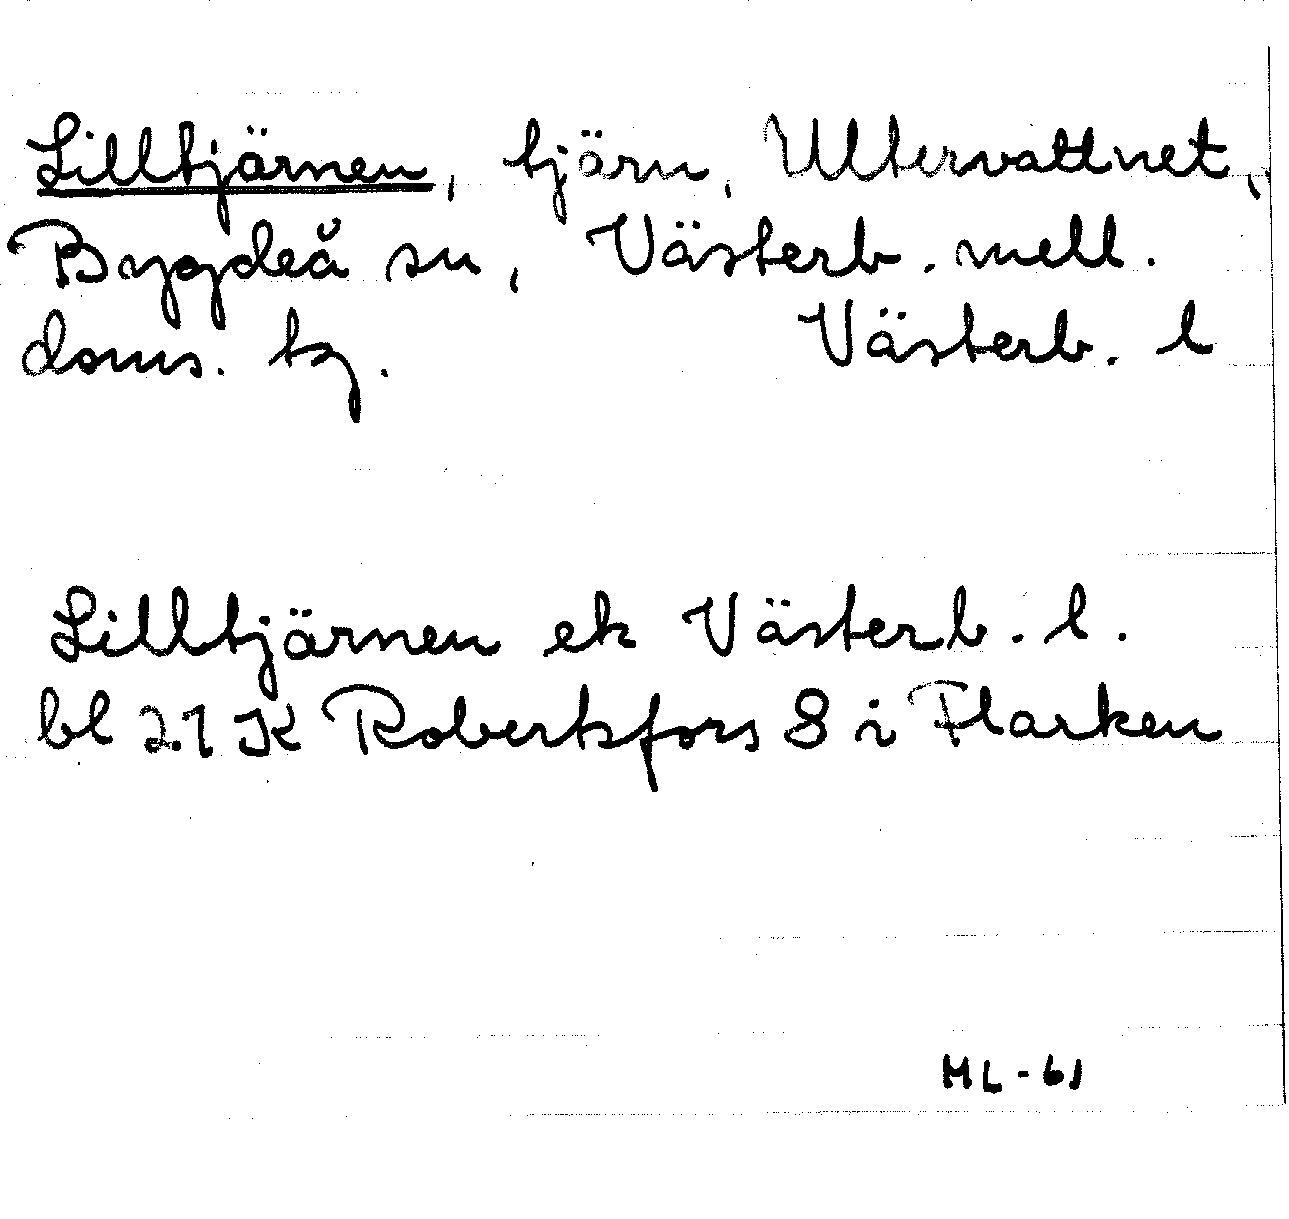 Lilltjärnen, tjärn, Ultervattnet,
Bygdeå sn, Västerb. mell.
doms. tg. Västerb. l
Lilltjärnen ek Västerb. l.
bl 21 K Robertsfors 8 i Flarken
ML-61